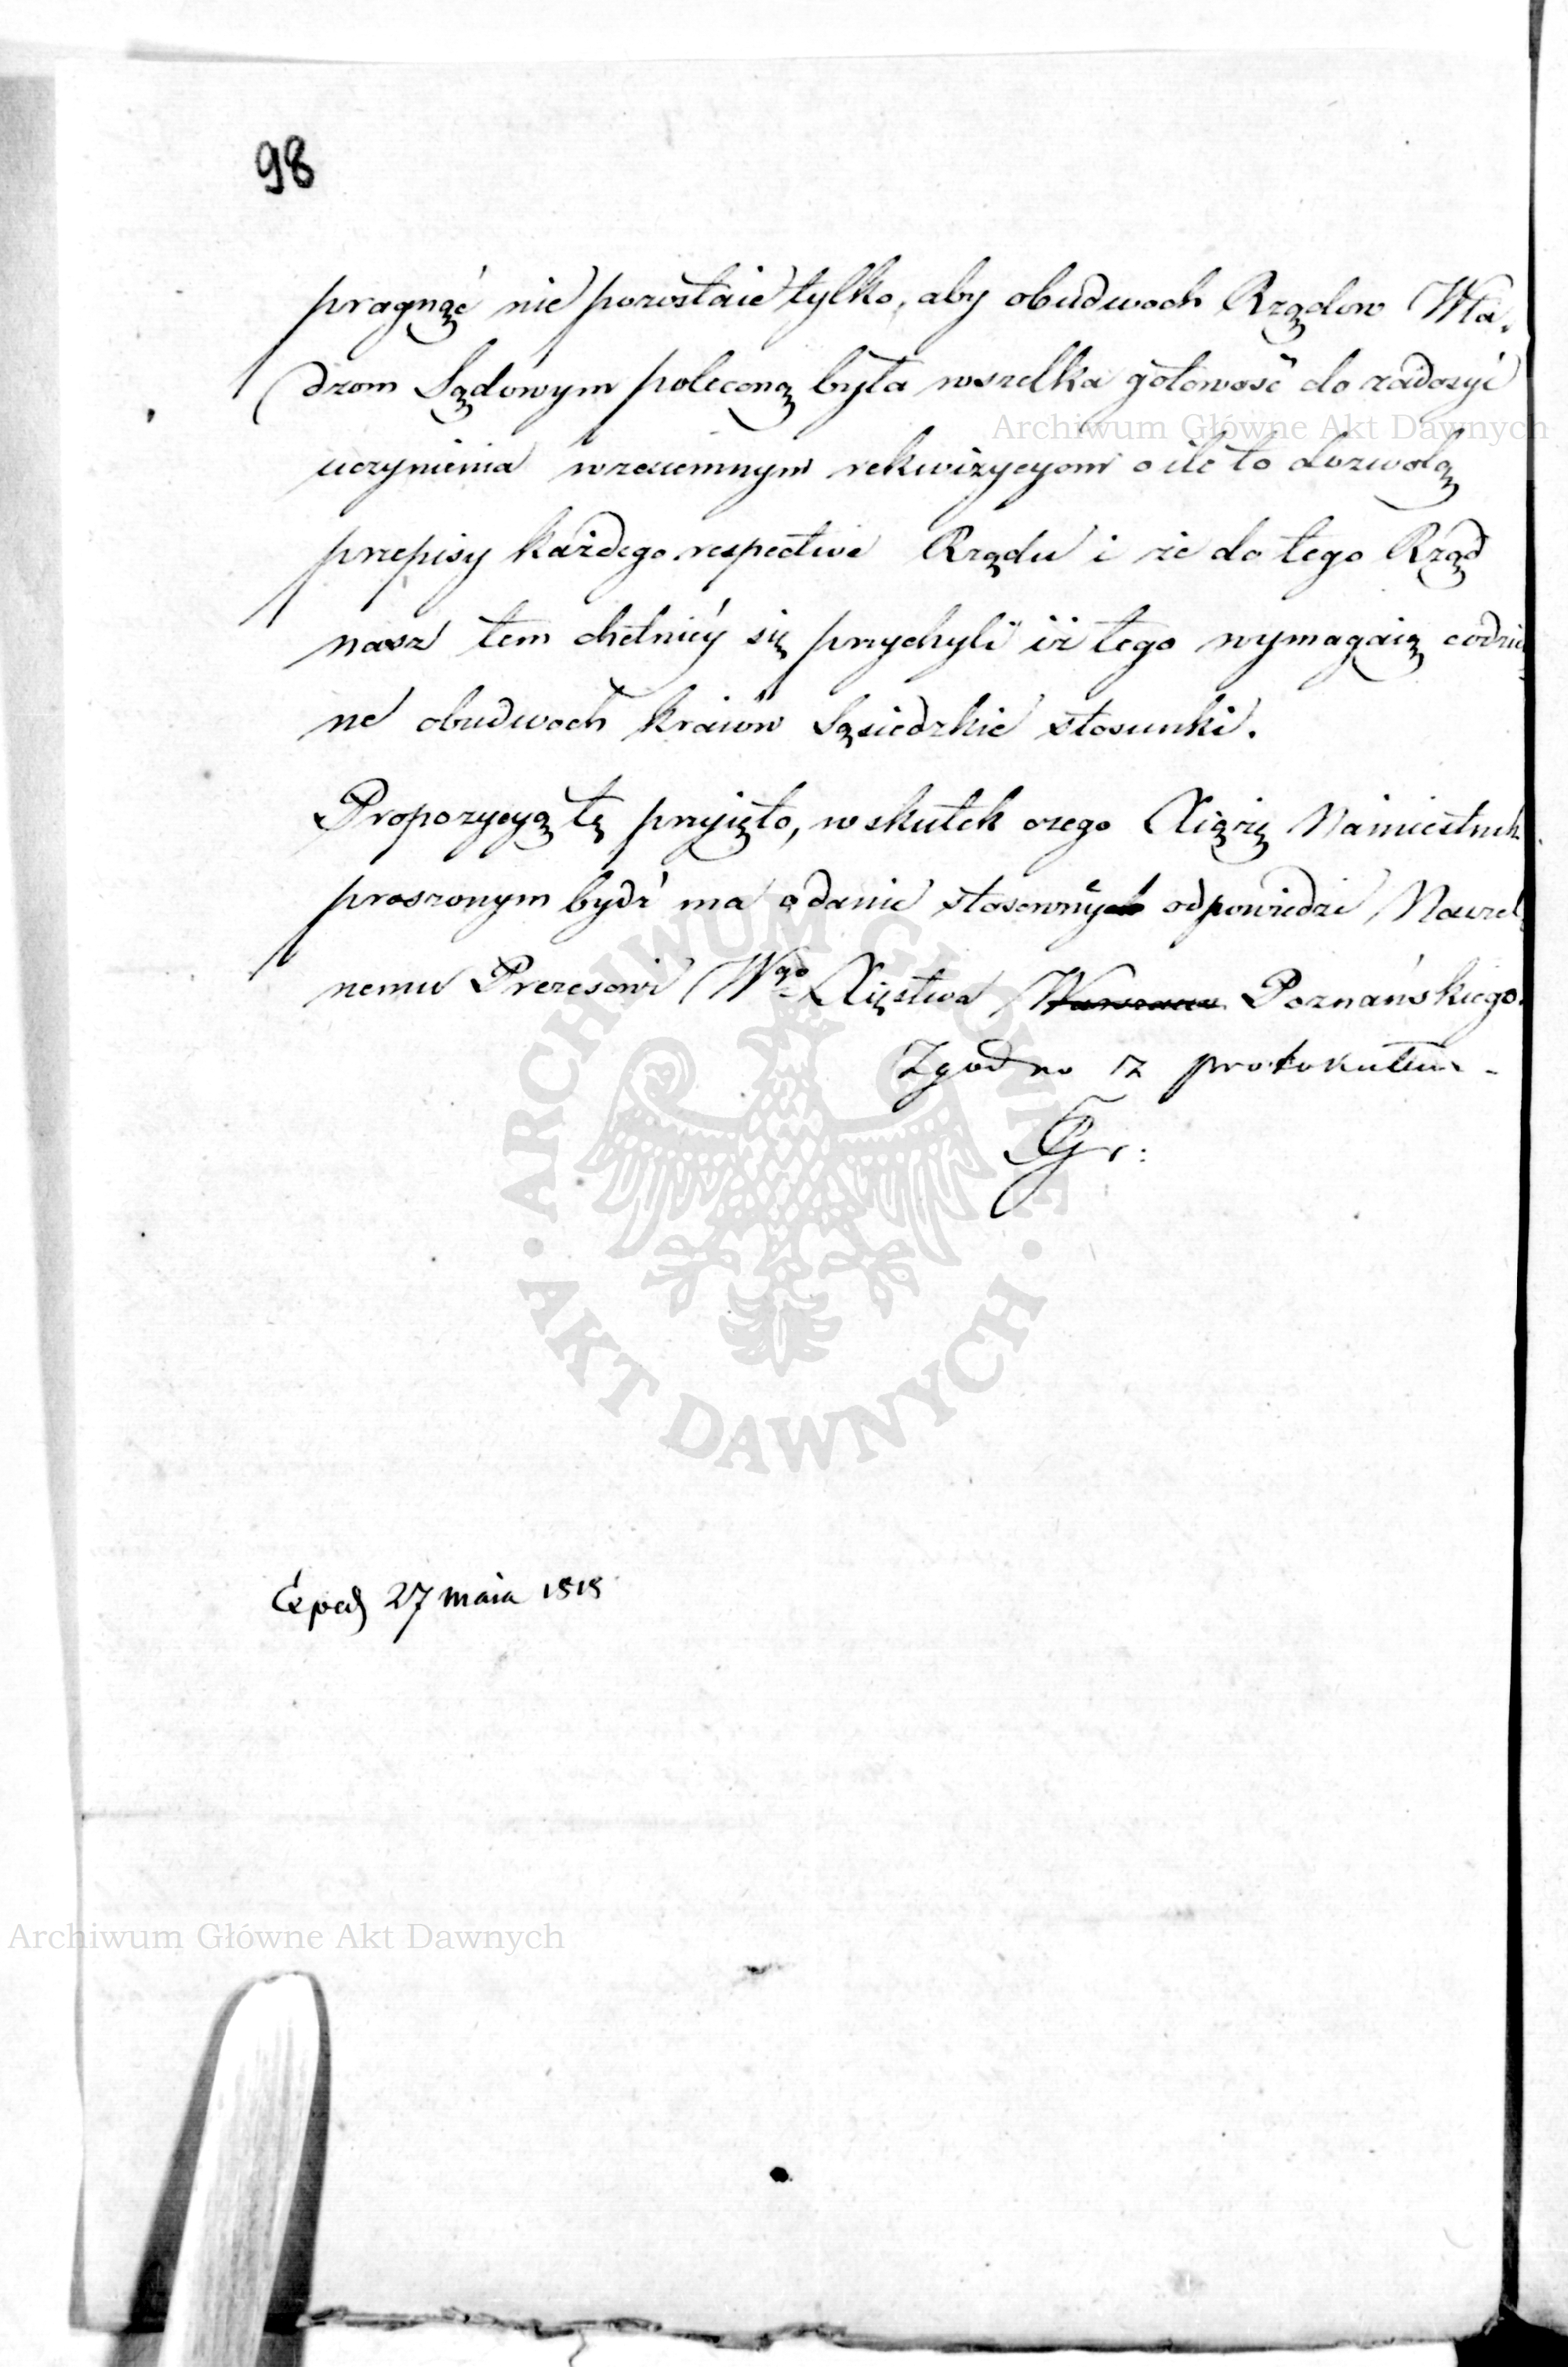 98
pragnąć nie pozostaie tylko, aby obudwoch Rządow Wła-
dzom Sądowym poleconą była wszelka gotowość do zadosyć
uczynienia wzaiemnym rekwizycyom o ile to dozwolą
przepisy każdego respective Rządu i że do tego Rząd
nasz tem chętniéy się przychyli iż tego wymagaią codzie
ne obudwoch kraiow Sąsiedzkie stosunki.
Propozycyą tę przyięto, w skutek czego Xiążę Namiestnik
proszonym bydź ma o danie stosowney odpowiedzi Naczel
nemu Prezesowi Wgo Xięstwa Poznańskiego.
Zgodno z protokułem
Gr:
Exped 27 maia 1818
Archiwum Główne Akt Dawnych
ARCHIWUM GŁÓWNE · AKT DAWNYCH ·
Archiwum Główne Akt Dawnych